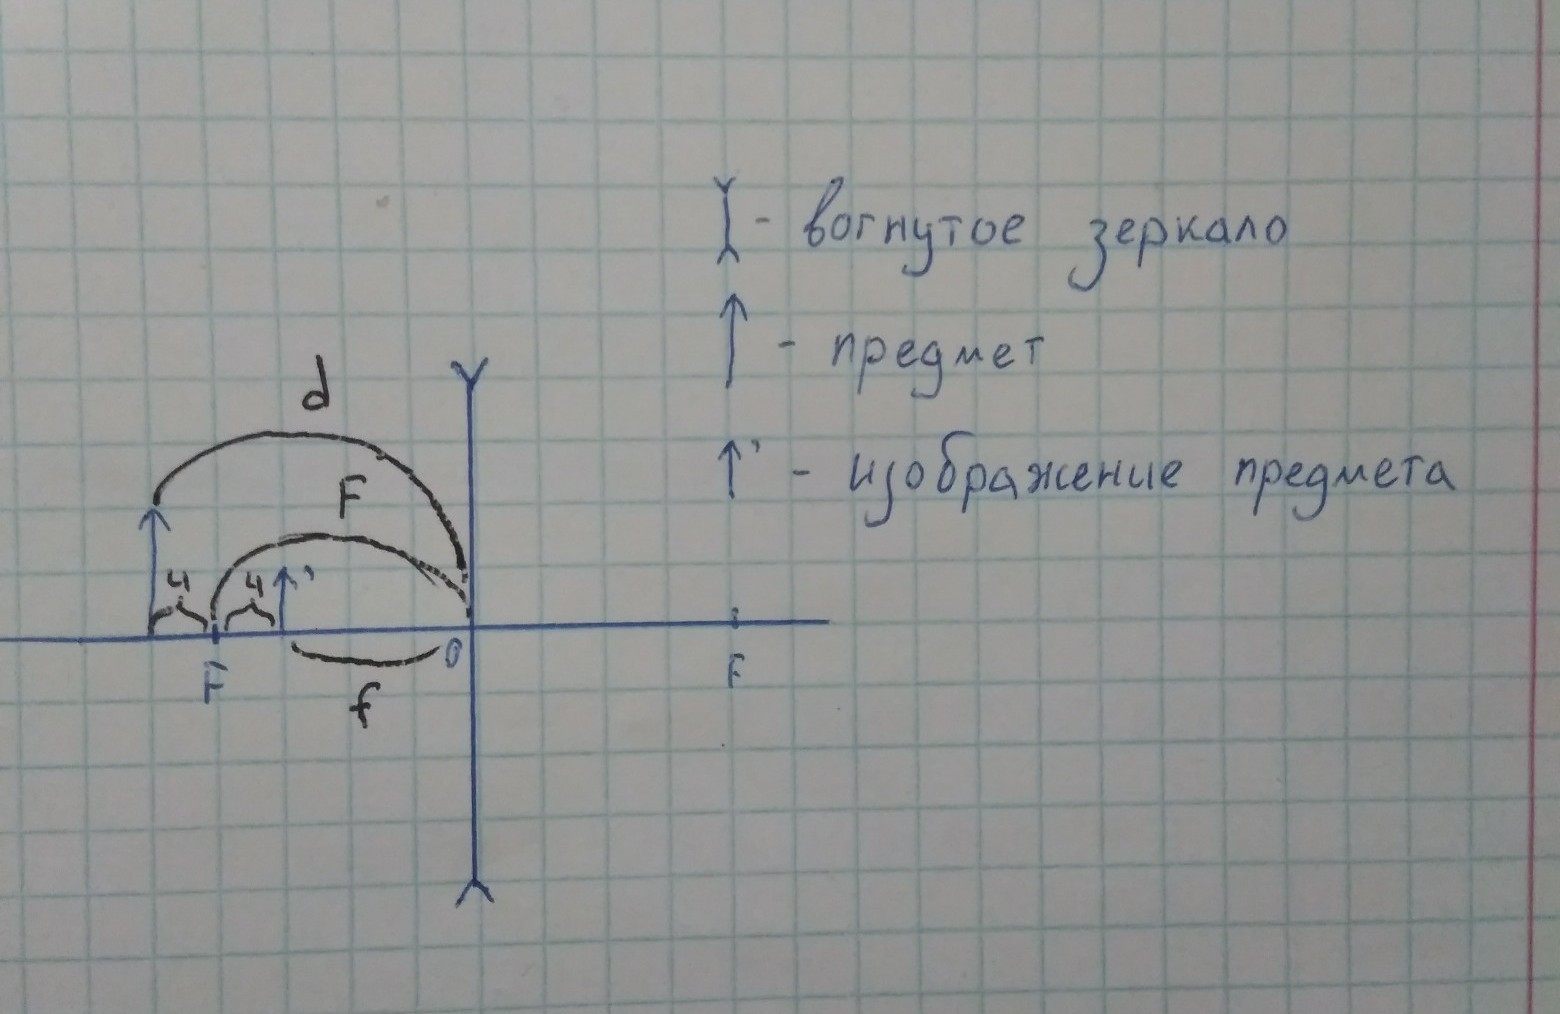 - вогнутое зеркало
- предмет
' - изображение предмета
d
F
4 4 '
F f 0 F